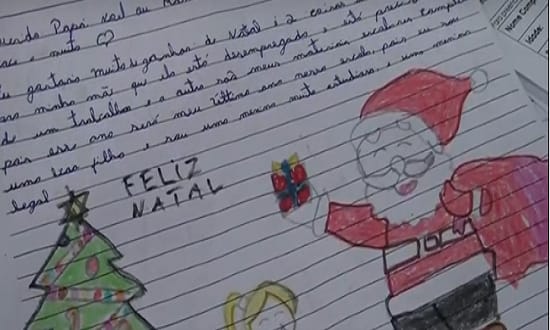 Querido Papai Noel ou
e muito
Eu gostaria muito de ganhar de Natal é 2 coisas
para minha mãe que ela está desempregada e está
de um trabalho e a outra são meus materiais escolares
pois esse ano será meu último ano nessa escola, pois eu sou
uma boa filha e sou uma menina muito estudiosa e uma menina
legal
FELIZ
NATAL
Nome